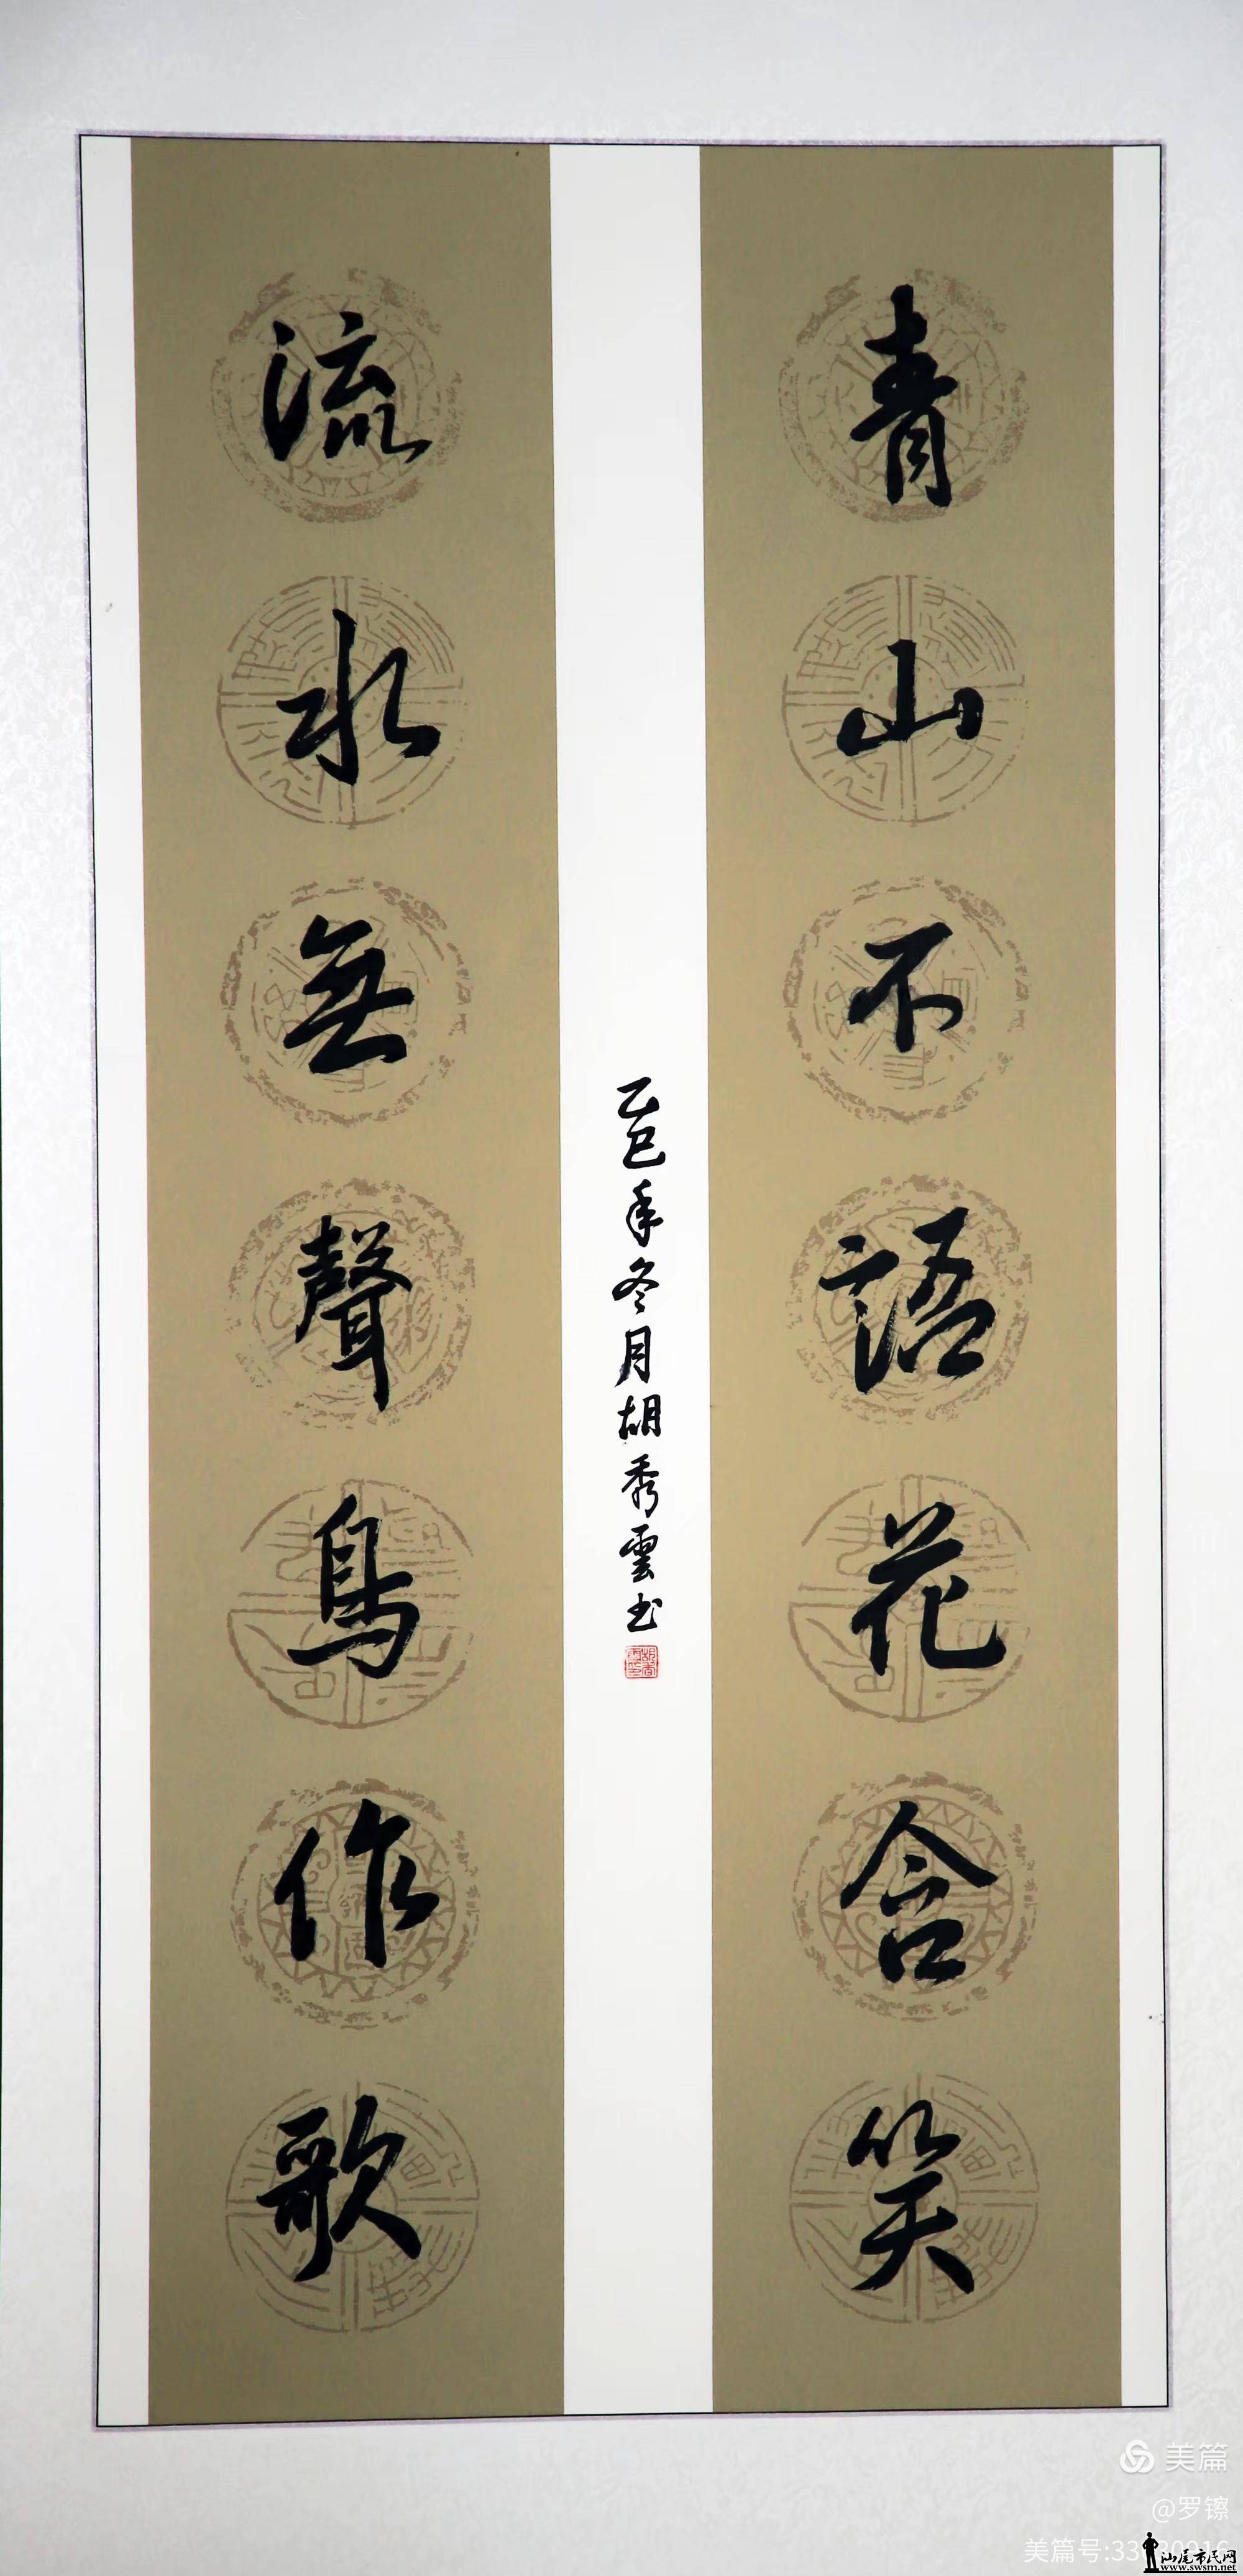 青山不語花含笑
流水無聲鳥作歌
乙巳年冬月胡秀雲书
美篇
@罗镲
美篇号:33
汕尾市民网
www.swsm.net